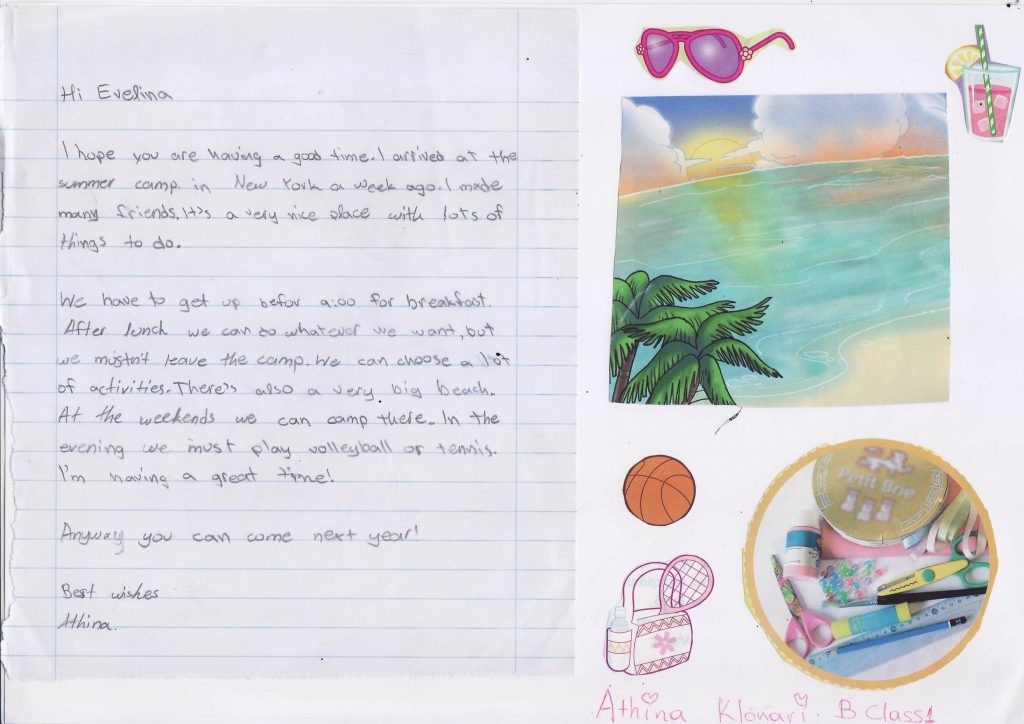 Hi Evelina
I hope you are having a good time. I arrived at the
summer camp in New York a week ago. I made
many friends. It's a very nice place with lots of
things to do.
We have to get up befor 9:00 for breakfast.
After lunch we can do whatever we want, but
we mustn't leave the camp. We can choose a lot
of activities. There's also a very big beach.
At the weekends we can camp there. In the
evening we must play volleyball or tennis.
I'm having a great time!
Anyway you can come next year!
Best wishes
Athina.
Petit Brie
Athina Klonari. B Class1